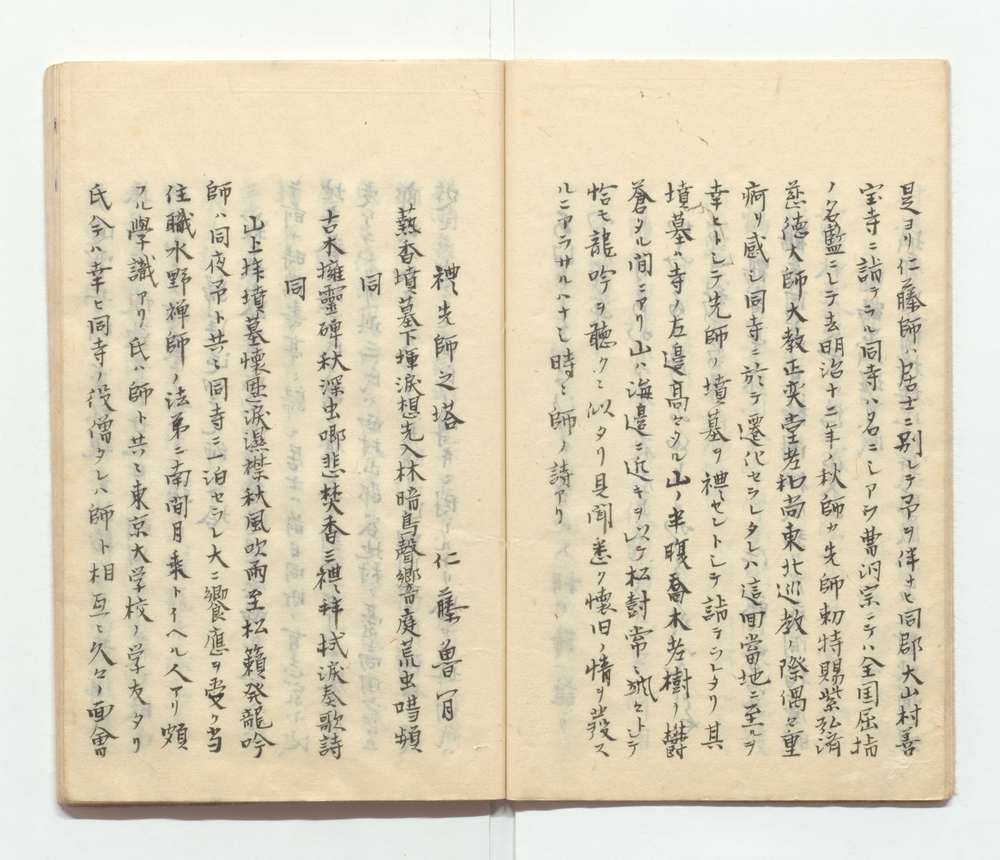 是ヨリ仁藤師ハ居士ニ別レテ予ヲ伴ナヒ同郡大山村善
宝寺ニ詣ラル同寺ハ名ニシアフ曹洞宗ニテハ全国屈指
ノ名藍ニシテ去明治十二年ノ秋師カ先師勅特賜紫弘済
慈徳大師大教正奕堂老和尚東北巡教ノ際偶々重
痾リ感シ同寺ニ於テ遷化セラレタレハ這回當地ニ至ルヲ
幸ヒトシテ先師ノ墳墓ヲ禮セントシテ詣ラレタリ其
墳墓ハ寺ノ左邊高々タル山ノ半腹喬木老樹ノ欝
蒼タル間ニアリ山ハ海邉ニ近キヲ以テ松濤常ニ颯々トシテ
恰モ龍吟ヲ聴クニ似タリ見聞悉ク懐旧ノ情ヲ發ス
ルニアラサルハナシ時ニ師ノ詩アリ
禮先師之塔 仁藤魯冐
爇香墳墓下揮涙想先入林暗鳥聲響庭荒虫噫頻
同
古木擁靈碑秋深虫喞悲焚香三禮拝拭涙奏歌詩
同
山上拝墳墓懐𦾔涙濕襟秋風吹雨至松籟発龍吟
師ハ同夜予ト共ニ同寺ニ一泊セラレ大ニ饗應ヲ受ク当
住職水野禅師ノ法弟ニ南間月乗トイヘル人アリ頗
フル學識アリ氏ハ師ト共ニ東京大学校ノ学友タリ
氏今ハ幸ヒ同寺ノ役僧タレハ師ト相互ニ久々ノ面會